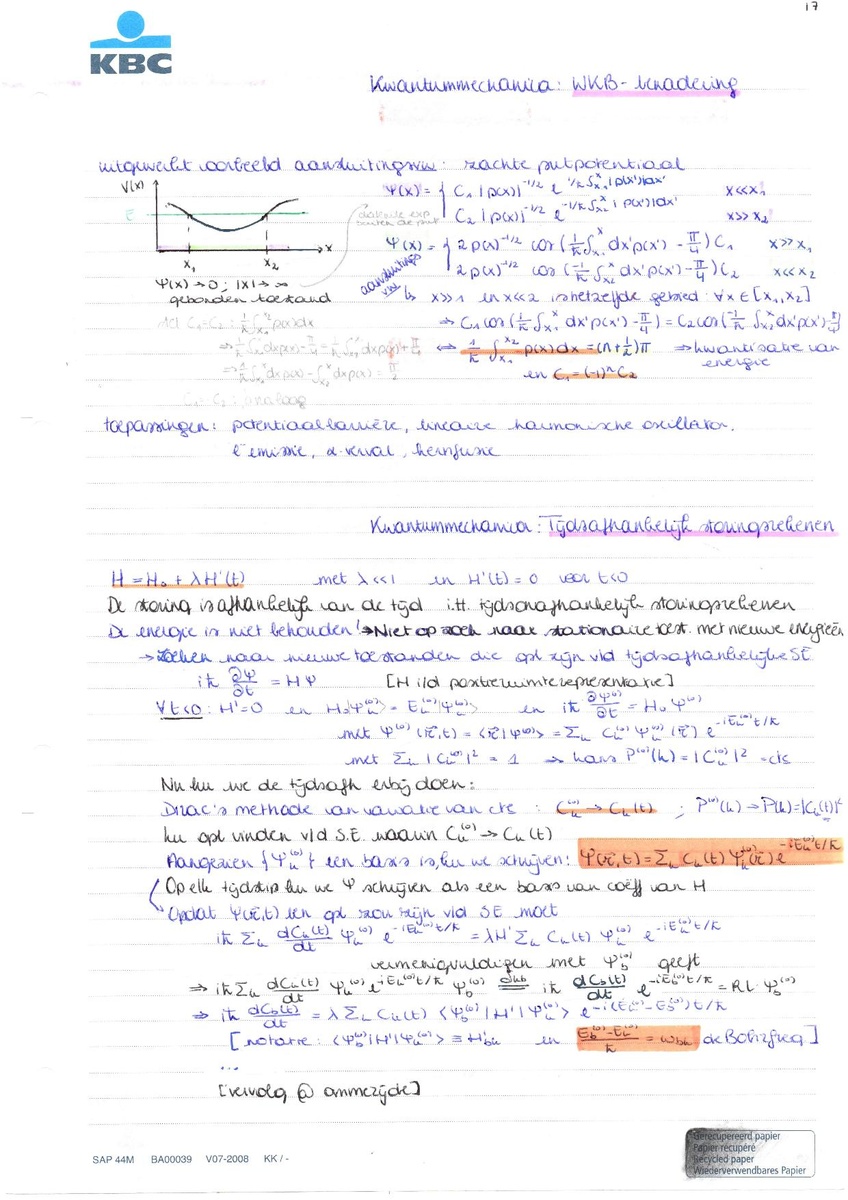 17
KBC
Kwantummechanica: WKB-benadering
uitgewerkt voorbeeld aansluitingsvw: zachte putpotentiaal
V(x)
E
x₁ x₂ x
ψ(x) → 0 ; |x| → ∞
gebonden toestand
ψ(x) = { C₁ |p(x)|^{-1/2} e^{1/ħ ∫_{x₁}^{x} |p(x')|dx'} x<<x₁
C₂ |p(x)|^{-1/2} e^{-1/ħ ∫_{x₂}^{x} |p(x')|dx'} x>>x₂
ψ(x) = { 2p(x)^{-1/2} cos(1/ħ ∫_{x₁}^{x} dx'p(x') - π/4) C₁ x>>x₁
2p(x)^{-1/2} cos(-1/ħ ∫_{x₂}^{x} dx'p(x') - π/4) C₂ x<<x₂
aansluitings
↳ x>>1 en x<<2 is hetzelfde gebied: ∀x∈[x₁,x₂]
⇒ C₁cos(1/ħ ∫_{x₁}^{x} dx'p(x') - π/4) = C₂cos(-1/ħ ∫_{x₂}^{x} dx'p(x') - π/4)
⇔ 1/ħ ∫_{x₁}^{x₂} p(x)dx = (n+1/2)π ⇒ kwantisatie van energie
en C₁=(-1)ⁿC₂
C₁=-C₂ : analoog
toepassingen: potentiaalbarrière, lineaire harmonische oscillator,
e⁻emissie, α-verval, kernfusie
Kwantummechanica: Tijdsafhankelijk storingsrekenen
H = H₀ + λH'(t) met λ<<1 en H'(t) = 0 voor t<0
De storing is afhankelijk van de tijd i.t.t. tijdsonafhankelijk storingsrekenen
De energie is niet behouden! → Niet op zoek naar stationaire toest. met nieuwe energieën
→ Zoeken naar nieuwe toestanden die opl zijn vd tijdsafhankelijke SE
iħ ∂ψ/∂t = Hψ [H i/d positieruimterepresentatie]
∀t<0 : H'=0 en H₀ψₖ⁽⁰⁾ = Eₖ⁽⁰⁾|ψₖ⁽⁰⁾⟩ en iħ ∂ψ⁽⁰⁾/∂t = H₀ψ⁽⁰⁾
met ψ⁽⁰⁾(r̄,t) = ⟨r̄|ψ⁽⁰⁾⟩ = Σₖ Cₖ⁽⁰⁾ ψₖ⁽⁰⁾(r̄) e^{-iEₖ⁽⁰⁾t/ħ}
met Σₖ |Cₖ⁽⁰⁾|² = 1 ⇒ kans P⁽⁰⁾(k) = |Cₖ⁽⁰⁾|² = cte
Nu ku we de tijdsafh erbij doen:
Dirac's methode van variatie van cte : Cₖ⁽⁰⁾ → Cₖ(t) ; P⁽⁰⁾(k) → P(k)=|Cₖ(t)|²
ku opl vinden v/d S.E. waarin Cₖ⁽⁰⁾ → Cₖ(t)
Aangezien {ψₖ⁽⁰⁾} een basis is, ku we schrijven: ψ(r̄,t) = Σₖ Cₖ(t) ψₖ⁽⁰⁾(r̄) e^{-iEₖ⁽⁰⁾t/ħ}
Op elk tijdstip ku we ψ schrijven als een basis van coëff van H
Opdat ψ(r̄,t) een opl zou zijn vd SE moet
iħ Σₖ dCₖ(t)/dt ψₖ⁽⁰⁾ e^{-iEₖ⁽⁰⁾t/ħ} = λH' Σₖ Cₖ(t) ψₖ⁽⁰⁾ e^{-iEₖ⁽⁰⁾t/ħ}
vermenigvuldigen met ψ_b⁽⁰⁾ geeft
⇒ iħ Σₖ dCₖ(t)/dt ψₖ⁽⁰⁾ e^{-iEₖ⁽⁰⁾t/ħ} ψ_b⁽⁰⁾ =^{δₖb} iħ dC_b(t)/dt e^{-iE_b⁽⁰⁾t/ħ} = RL · ψ_b⁽⁰⁾
⇒ iħ dC_b(t)/dt = λ Σₖ Cₖ(t) ⟨ψ_b⁽⁰⁾|H'|ψₖ⁽⁰⁾⟩ e^{-i(Eₖ⁽⁰⁾-E_b⁽⁰⁾)t/ħ}
[notatie: ⟨ψ_b⁽⁰⁾|H'|ψₖ⁽⁰⁾⟩ ≡ H'_bk en (E_b⁽⁰⁾-Eₖ⁽⁰⁾)/ħ = ω_bk de Bohrfreq]
...
[vervolg @ ommezijde]
SAP 44M BA00039 V07-2008 KK / -
Gerecupereerd papier
Papier recupéré
Recycled paper
Wiederverwendbares Papier